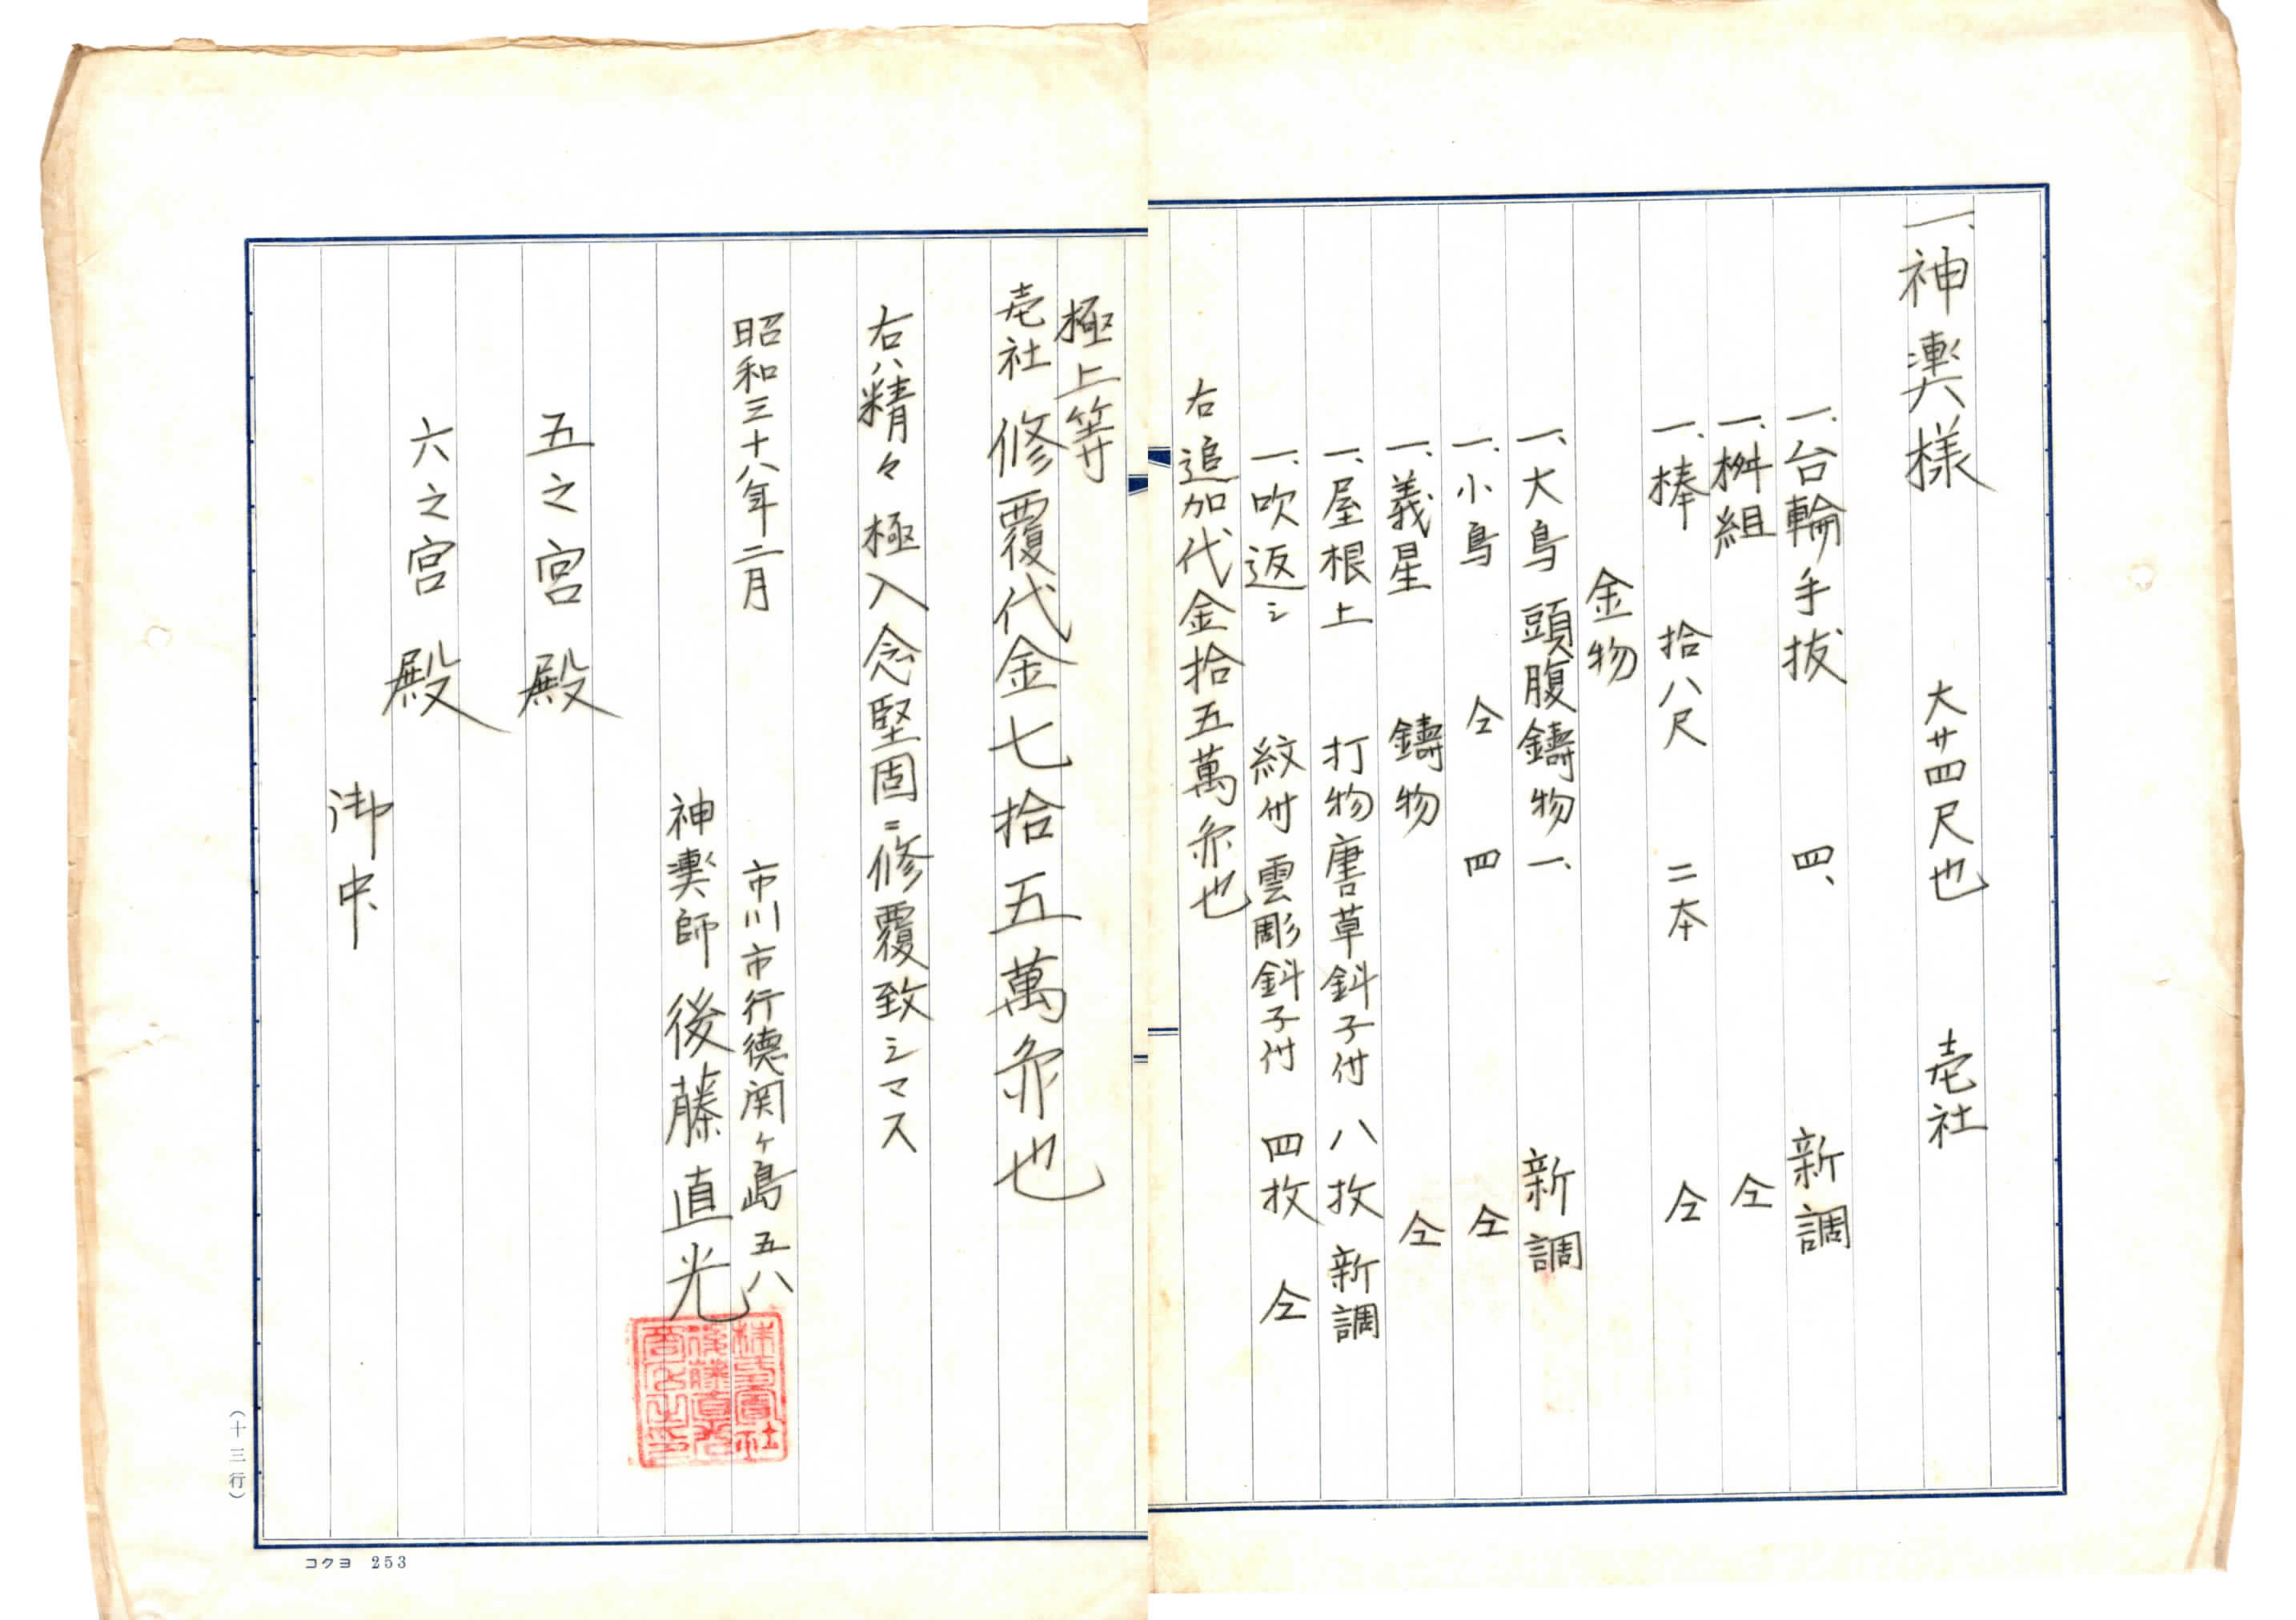 一、神輿様 大廿四尺也 壱社
一、台輪手抜 四、 新調
一、桝組 仝
一、棒 拾八尺 二本 仝
金物
一、大鳥 頭腹鋳物 一、 新調
一、小鳥 仝 四 仝
一、義星 鋳物 仝
一、屋根上 打物唐草鈄子付 八枚 新調
一、吹返シ 紋付雲彫鈄子付 四枚 仝
右追加代金拾五萬円也
極上等
壱社 修覆代金七拾五萬円也
右ハ精々極入念堅固ニ修覆致シマス
昭和三十八年二月
市川市行徳関ヶ島五八
神輿師 後藤直光
五之宮殿
六之宮殿
御中
(十三行)
コクヨ 253